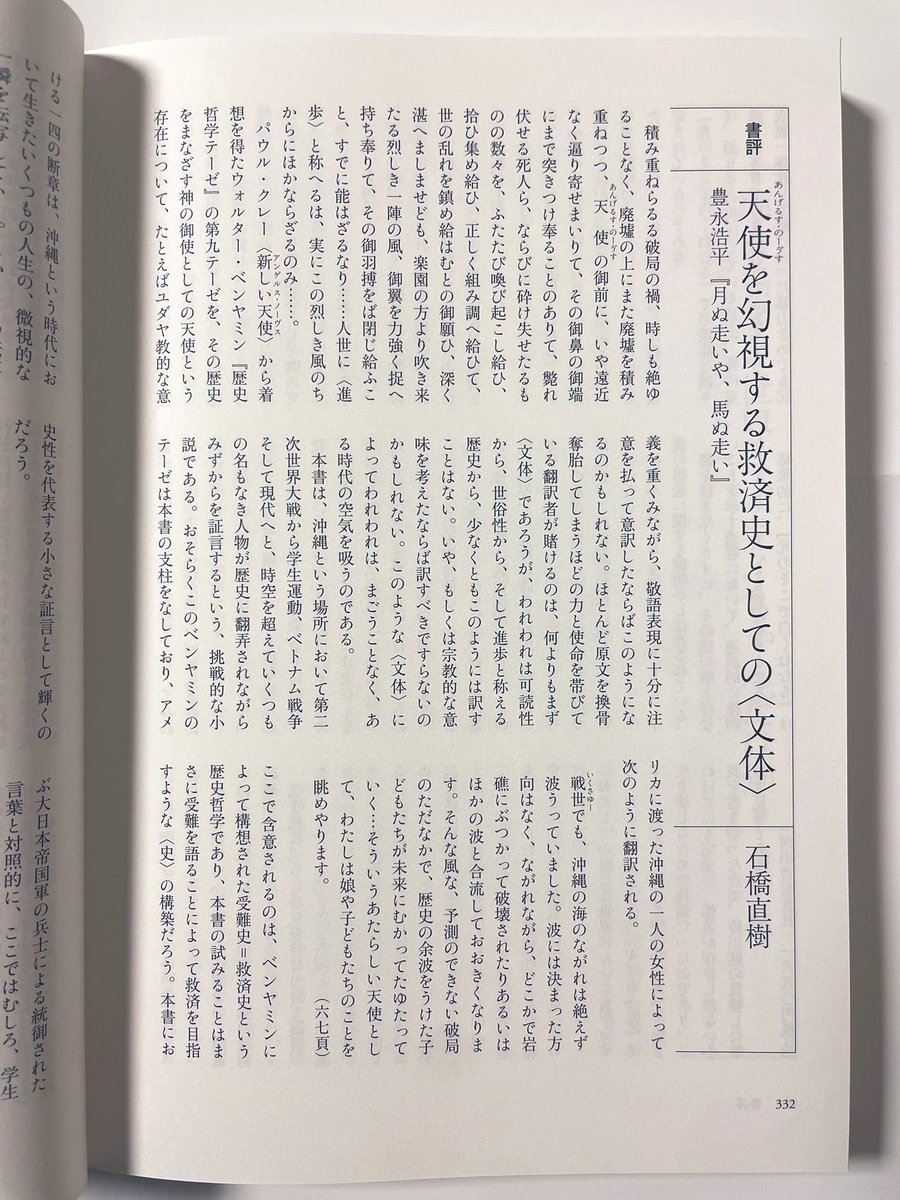 書評
天使を幻視する救済史としての〈文体〉
あんげるす・のーゔす
豊永浩平『月ぬ走いや、馬ぬ走い』
石橋直樹
積み重ねらるる破局の禍、時しも絶ゆ
ることなく、廃墟の上にまた廃墟を積み
重ねつつ、天使の御前に、いや遠近
あんげるす・のーゔす
なく逼り寄せまいりて、その御鼻の御端
にまで突きつけ奉ることのありて、斃れ
伏せる死人ら、ならびに砕け失せたるも
のの数々を、ふたたび喚び起こし給ひ、
拾ひ集め給ひ、正しく組み調へ給ひて、
世の乱れを鎮め給はむとの御願ひ、深く
湛へましませども、楽園の方より吹き来
たる烈しき一陣の風、御翼を力強く捉へ
持ち奉りて、その御羽搏をば閉じ給ふこ
と、すでに能はざるなり……人世に〈進
歩〉と称へるは、実にこの烈しき風のち
からにほかならざるのみ……。
パウル・クレー〈新しい天使〉から着
アンゲルス・ノーヴス
想を得たウォルター・ベンヤミン『歴史
哲学テーゼ』の第九テーゼを、その歴史
をまなざす神の御使としての天使という
存在について、たとえばユダヤ教的な意
義を重くみながら、敬語表現に十分に注
意を払って意訳したならばこのようにな
るのかもしれない。ほとんど原文を換骨
奪胎してしまうほどの力と使命を帯びて
いる翻訳者が賭けるのは、何よりもまず
〈文体〉であろうが、われわれは可読性
から、世俗性から、そして進歩と称える
歴史から、少なくともこのようには訳す
ことはない。いや、もしくは宗教的な意
味を考えたならば訳すべきですらないの
かもしれない。このような〈文体〉に
よってわれわれは、まごうことなく、あ
る時代の空気を吸うのである。
本書は、沖縄という場所において第二
次世界大戦から学生運動、ベトナム戦争
そして現代へと、時空を超えていくつも
の名もなき人物が歴史に翻弄されながら
みずからを証言するという、挑戦的な小
説である。おそらくこのベンヤミンの
テーゼは本書の支柱をなしており、アメ
リカに渡った沖縄の一人の女性によって
次のように翻訳される。
戦世でも、沖縄の海のながれは絶えず
いくさゆー
波うっていました。波には決まった方
向はなく、ながれながら、どこかで岩
礁にぶつかって破壊されたりあるいは
ほかの波と合流しておおきくなりま
す。そんな風な、予測のできない破局
のただなかで、歴史の余波をうけた子
どもたちが未来にむかってたゆたって
いく…そういうあたらしい天使とし
て、わたしは娘や子どもたちのことを
眺めやります。
（六七頁）
ここで含意されるのは、ベンヤミンに
よって構想された受難史＝救済史という
歴史哲学であり、本書の試みることはま
さに受難を語ることによって救済を目指
すような〈史〉の構築だろう。本書にお
332
ける一四の断章は、沖縄という時代にお
いて生きたいくつもの人生の、微視的な
史性を代表する小さな証言として輝くの
だろう。
ぶ大日本帝国軍の兵士による統御された
言葉と対照的に、ここではむしろ、学生